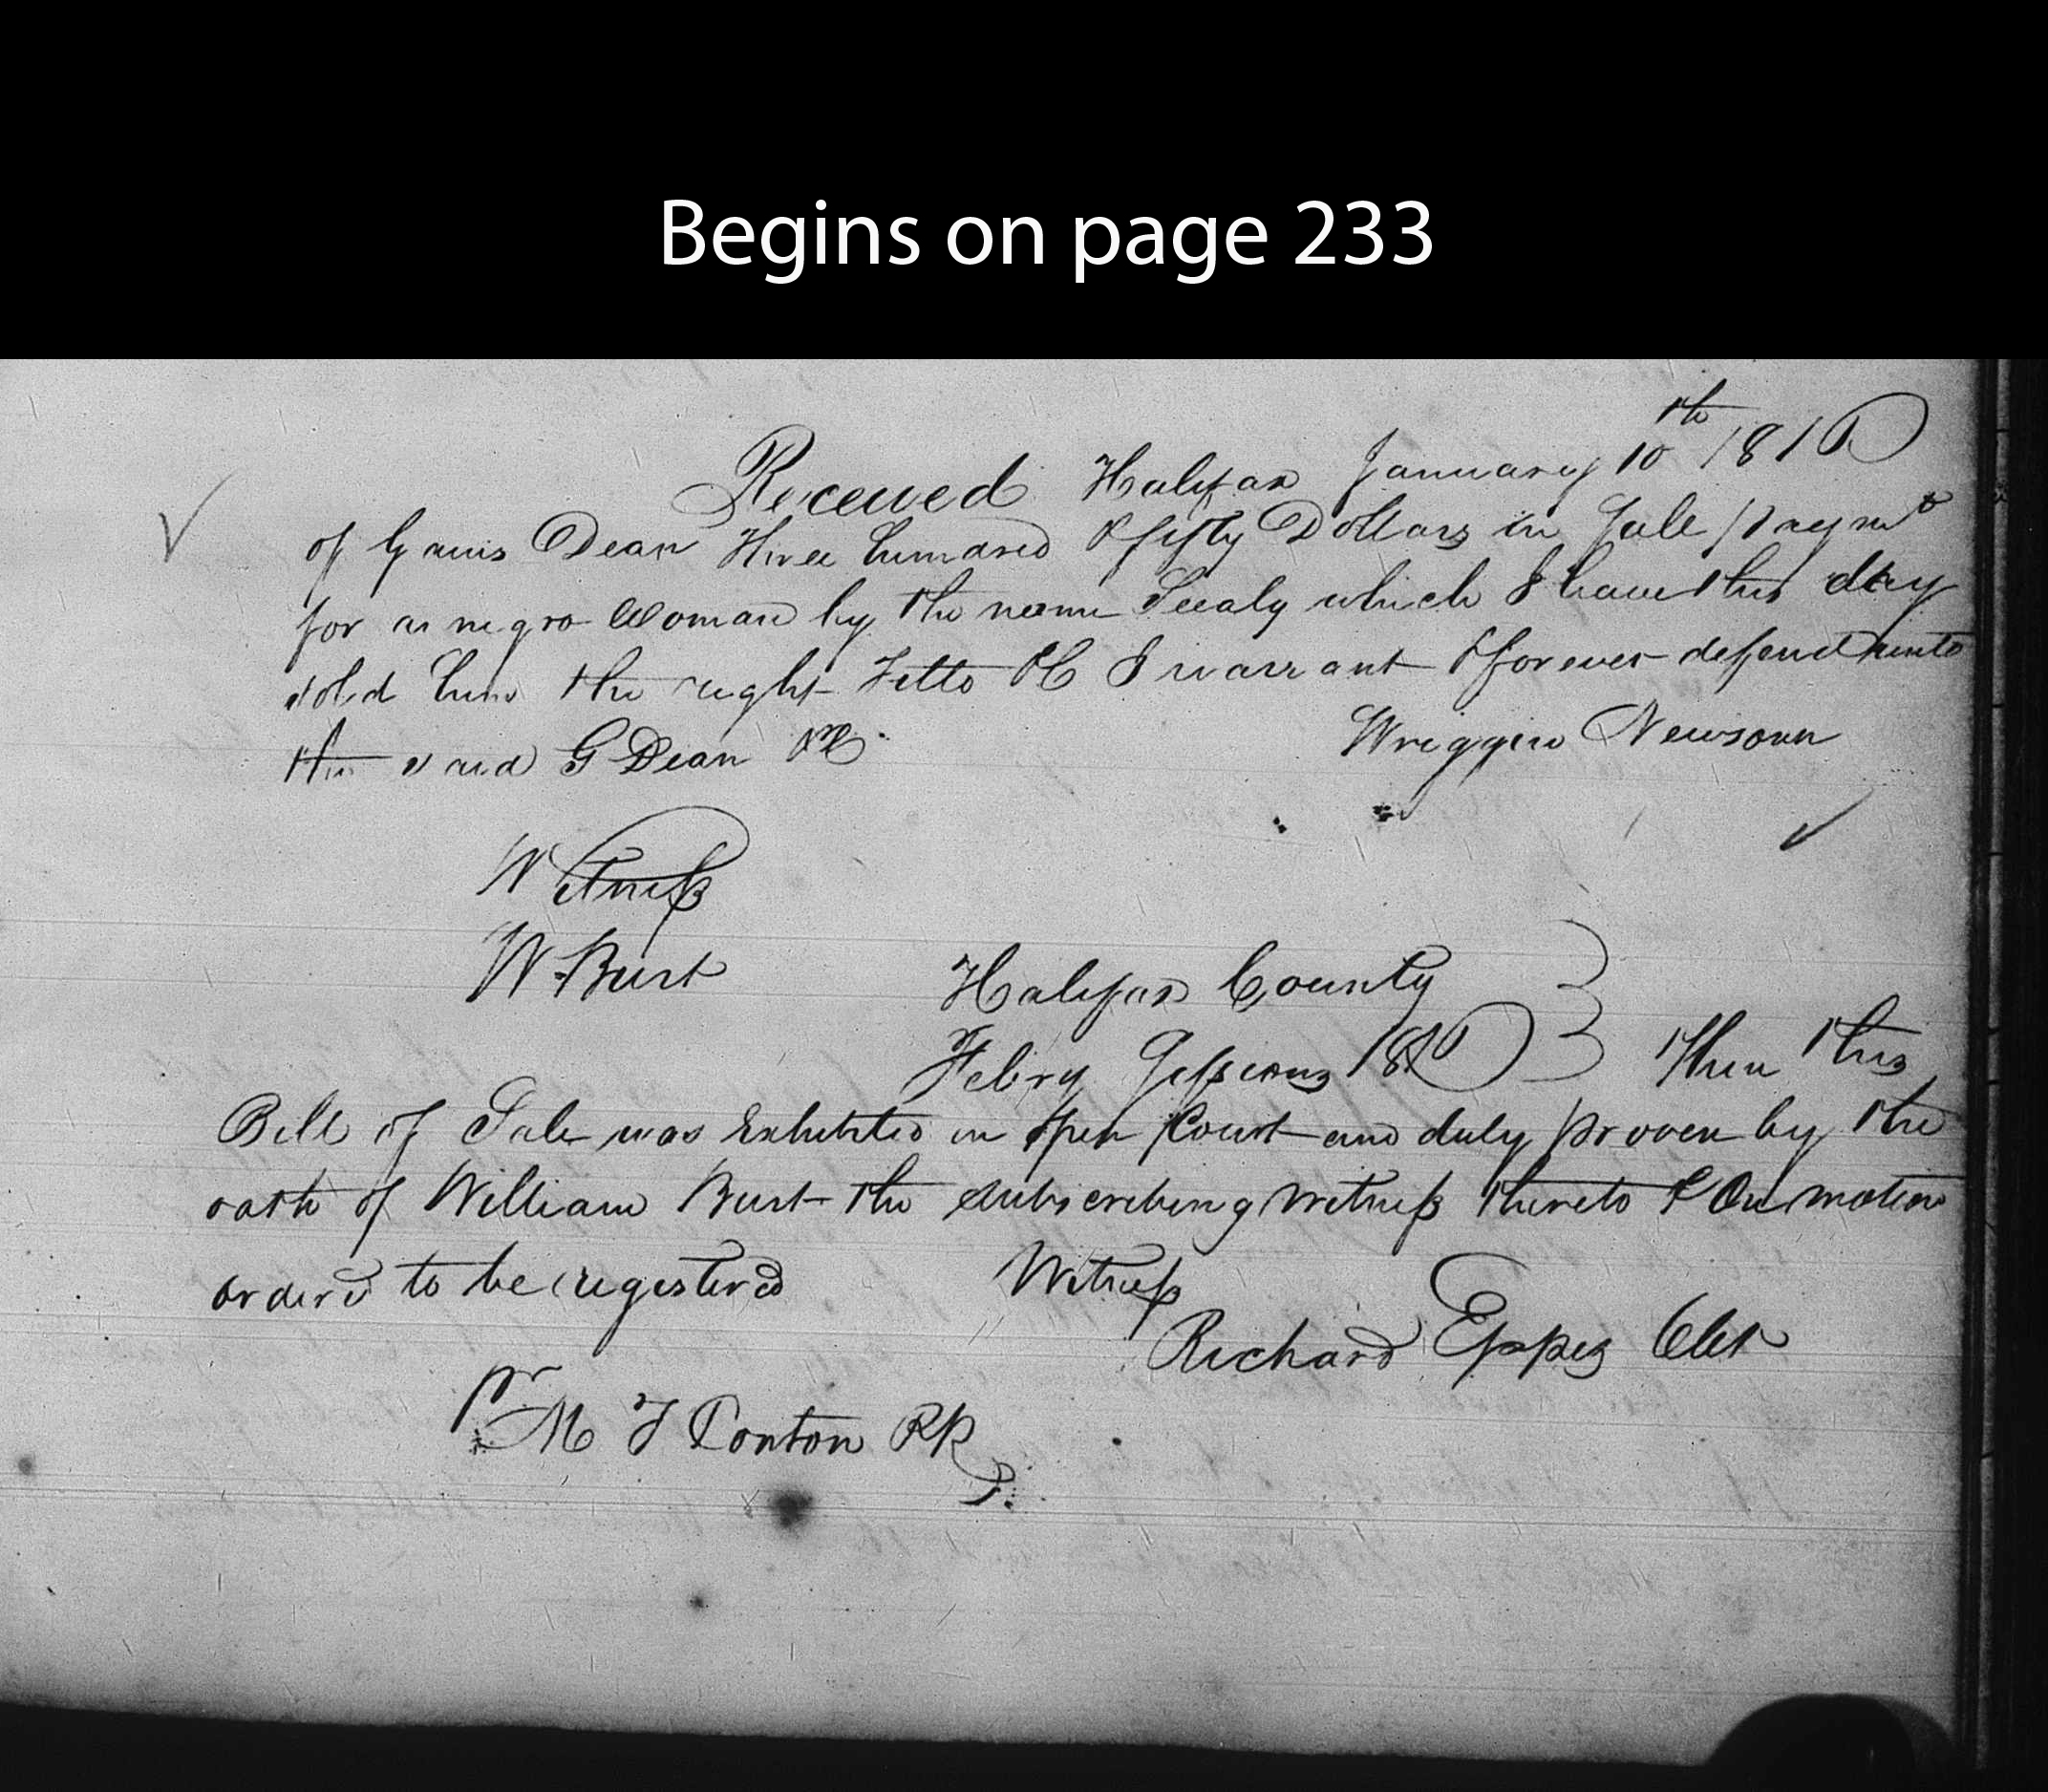 Begins on page 233
Received Halifax January 10th 1810
of Gains Dean Three hundred & fifty Dollars in full paymt
for a negro Woman by the name Sealy which I have this day
sold him the right Title &C I warrant & forever defend unto
the said G Dean &C
Wriggin Newsom
Witness
W. Burt
Halifax County
Febry Sessions 1810 Then this
Bill of Sale was Exhibited in Open Court and duly proven by the
oath of William Burt the subscribing Witness thereto & On motion
orderd to be registered
Witness
Richard Eppes Clk
pr
M T Ponton PR